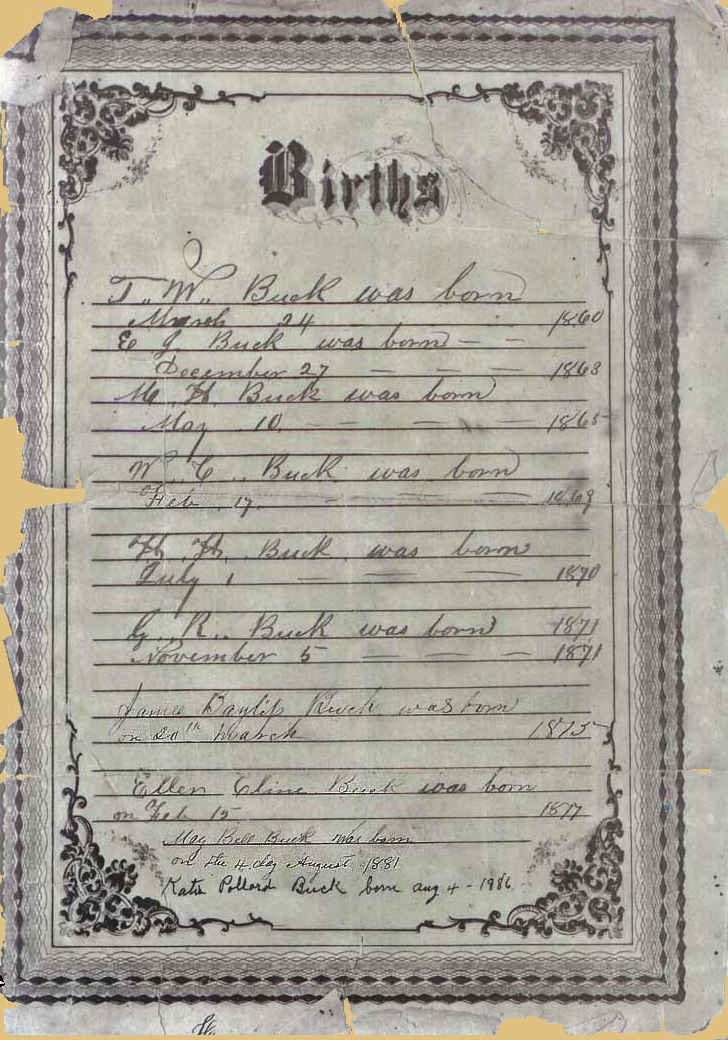 Births
T. W. Buck was born
March 24 1860
E G Buck was born — —
December 27 — — — 1863
M. H. Buck was born
May 10. — — — — 1865
W. C. Buck was born
Feb. 17. — — — 1869
H. H. Buck was born
July 1 — — — 1870
G. R. Buck was born 1871
November 5 — — — 1871
James Baylis Buck was born
on 20th March 1875
Ellen Cline Buck was born
on Feb 15 1877
May Bell Buck was born
on the 4 day August 1881
Katie Pollard Buck born aug 4 - 1986